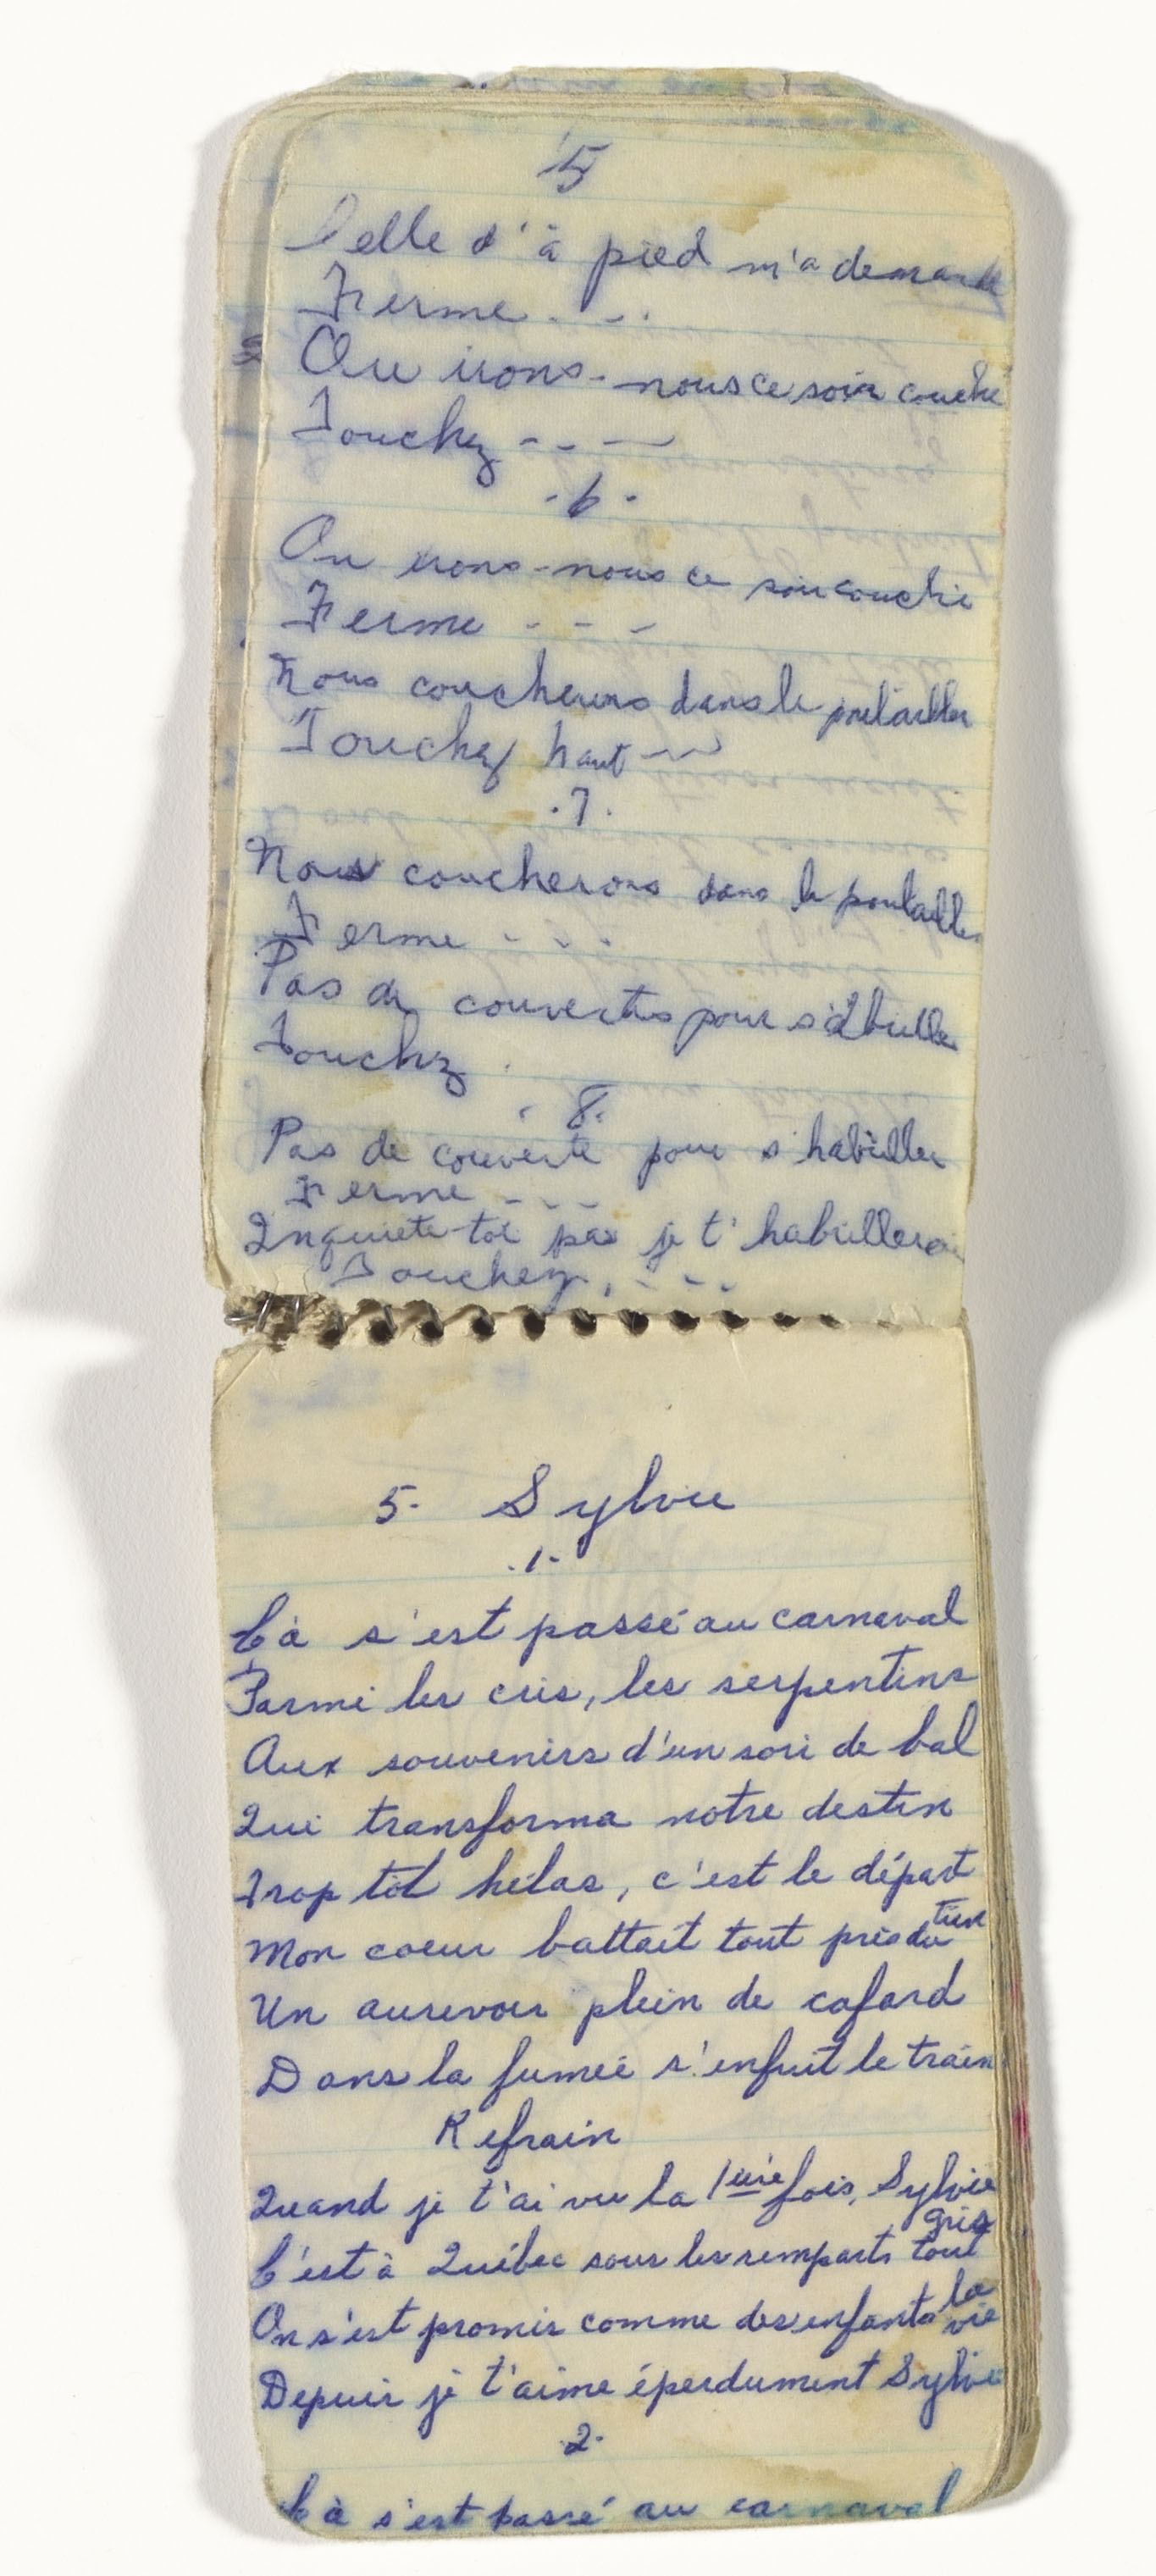 5
Celle d'à pied m'a demande
Ferme - - -
Ou irons-nous ce soir couché
Touchez - - -
- 6 -
Ou irons-nous ce soir couché
Ferme - - -
Nous coucherons dans le poulailler
Touchez haut
. 7 .
Nous coucherons dans le poulailler
Ferme - - -
Pas de couvertes pour s'abiller
Touchez .
. 8 .
Pas de couverte pour s'habiller
Ferme - - -
Inquiete-toi pas je t'habillerai
Touchez, - - -
5- Sylvie
.1.
Cà s'est passé au carnaval
Parmi les cris, les serpentins
Aux souvenirs d'un sori de bal
Qui transforma notre destin
Trop tôt hélas, c'est le départ
Mon coeur battait tout près du tien
Un aurevoir plein de cafard
Dans la fumée s'enfuit le train
Refrain
Quand je t'ai vu la 1ière fois, Sylvie
C'est à Québec sous les remparts tout gris
On s'est promis comme des enfants la vie
Depuis je t'aime éperdument Sylvie
2-
Cà s'est passé au carnaval